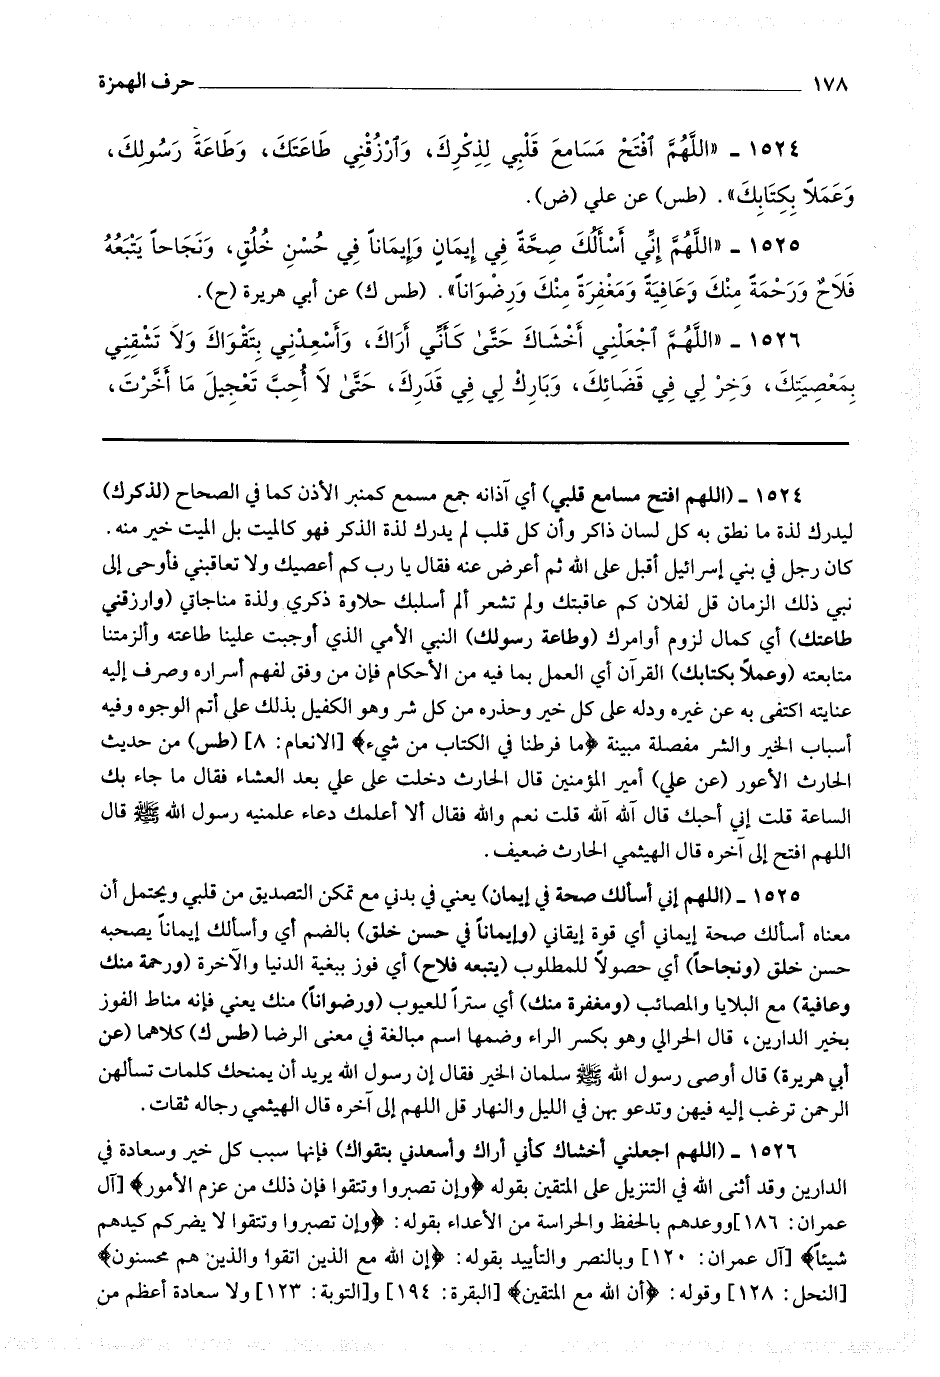 ١٧٨ حرف الهمزة
١٥٢٤ ـ «اللَّهُمَّ ٱفْتَحْ مَسَامِعَ قَلْبِي لِذِكْرِكَ، وَٱرْزُقْنِي طَاعَتَكَ، وَطَاعَةَ رَسُولِكَ،
وَعَمَلاً بِكِتَابِكَ». (طس) عن علي (ض).
١٥٢٥ ـ «اللَّهُمَّ إِنِّي أَسْأَلُكَ صِحَّةً فِي إِيمَانٍ وَإِيمَاناً فِي حُسْنِ خُلُقٍ، وَنَجَاحاً يَتْبَعُهُ
فَلَاحٌ وَرَحْمَةً مِنْكَ وَعَافِيَةً وَمَغْفِرَةً مِنْكَ وَرِضْوَاناً». (طس ك) عن أبي هريرة (ح).
١٥٢٦ ـ «اللَّهُمَّ ٱجْعَلْنِي أَخْشَاكَ حَتَّىٰ كَأَنِّي أَرَاكَ، وَأَسْعِدْنِي بِتَقْوَاكَ وَلاَ تَشْقِنِي
بِمَعْصِيَتِكَ، وَخِرْ لِي فِي قَضَائِكَ، وَبَارِكْ لِي فِي قَدَرِكَ، حَتَّىٰ لاَ أُحِبَّ تَعْجِيلَ مَا أَخَّرْتَ،
١٥٢٤ ـ (اللهم افتح مسامع قلبي) أي آذانه جمع مسمع كمنبر الأذن كما في الصحاح (لذكرك)
ليدرك لذة ما نطق به كل لسان ذاكر وأن كل قلب لم يدرك لذة الذكر فهو كالميت بل الميت خير منه.
كان رجل في بني إسرائيل أقبل على الله ثم أعرض عنه فقال يا رب كم أعصيك ولا تعاقبني فأوحى إلى
نبي ذلك الزمان قل لفلان كم عاقبتك ولم تشعر ألم أسلبك حلاوة ذكري ولذة مناجاتي (وارزقني
طاعتك) أي كمال لزوم أوامرك (وطاعة رسولك) النبي الأمي الذي أوجبت علينا طاعته وألزمتنا
متابعته (وعملاً بكتابك) القرآن أي العمل بما فيه من الأحكام فإن من وفق لفهم أسراره وصرف إليه
عنايته اكتفى به عن غيره ودله على كل خير وحذره من كل شر وهو الكفيل بذلك على أتم الوجوه وفيه
أسباب الخير والشر مفصلة مبينة ﴿ما فرطنا في الكتاب من شيء﴾ [الانعام: ٨] (طس) من حديث
الحارث الأعور (عن علي) أمير المؤمنين قال الحارث دخلت على علي بعد العشاء فقال ما جاء بك
الساعة قلت إني أحبك قال آلله آلله قلت نعم والله فقال ألا أعلمك دعاء علمنيه رسول الله ﷺ قال
اللهم افتح إلى آخره قال الهيثمي الحارث ضعيف.
١٥٢٥ ـ (اللهم إني أسألك صحة في إيمان) يعني في بدني مع تمكن التصديق من قلبي ويحتمل أن
معناه أسألك صحة إيماني أي قوة إيقاني (وإيماناً في حسن خلق) بالضم أي وأسألك إيماناً يصحبه
حسن خلق (ونجاحاً) أي حصولاً للمطلوب (يتبعه فلاح) أي فوز ببغية الدنيا والآخرة (ورحمة منك
وعافية) مع البلايا والمصائب (ومغفرة منك) أي ستراً للعيوب (ورضواناً) منك يعني فإنه مناط الفوز
بخير الدارين، قال الحرالي وهو بكسر الراء وضمها اسم مبالغة في معنى الرضا (طس ك) كلاهما (عن
أبي هريرة) قال أوصى رسول الله ﷺ سلمان الخير فقال إن رسول الله يريد أن يمنحك كلمات تسألهن
الرحمن ترغب إليه فيهن وتدعو بهن في الليل والنهار قل اللهم إلى آخره قال الهيثمي رجاله ثقات.
١٥٢٦ ـ (اللهم اجعلني أخشاك كأني أراك وأسعدني بتقواك) فإنها سبب كل خير وسعادة في
الدارين وقد أثنى الله في التنزيل على المتقين بقوله ﴿وإن تصبروا وتتقوا فإن ذلك من عزم الأمور﴾ [آل
عمران: ١٨٦]ووعدهم بالحفظ والحراسة من الأعداء بقوله: ﴿وإن تصبروا وتتقوا لا يضركم كيدهم
شيئاً﴾ [آل عمران: ١٢٠] وبالنصر والتأييد بقوله: ﴿إن الله مع الذين اتقوا والذين هم محسنون﴾
[النحل: ١٢٨] وقوله: ﴿أن الله مع المتقين﴾ [البقرة: ١٩٤] و[التوبة: ١٢٣] ولا سعادة أعظم من